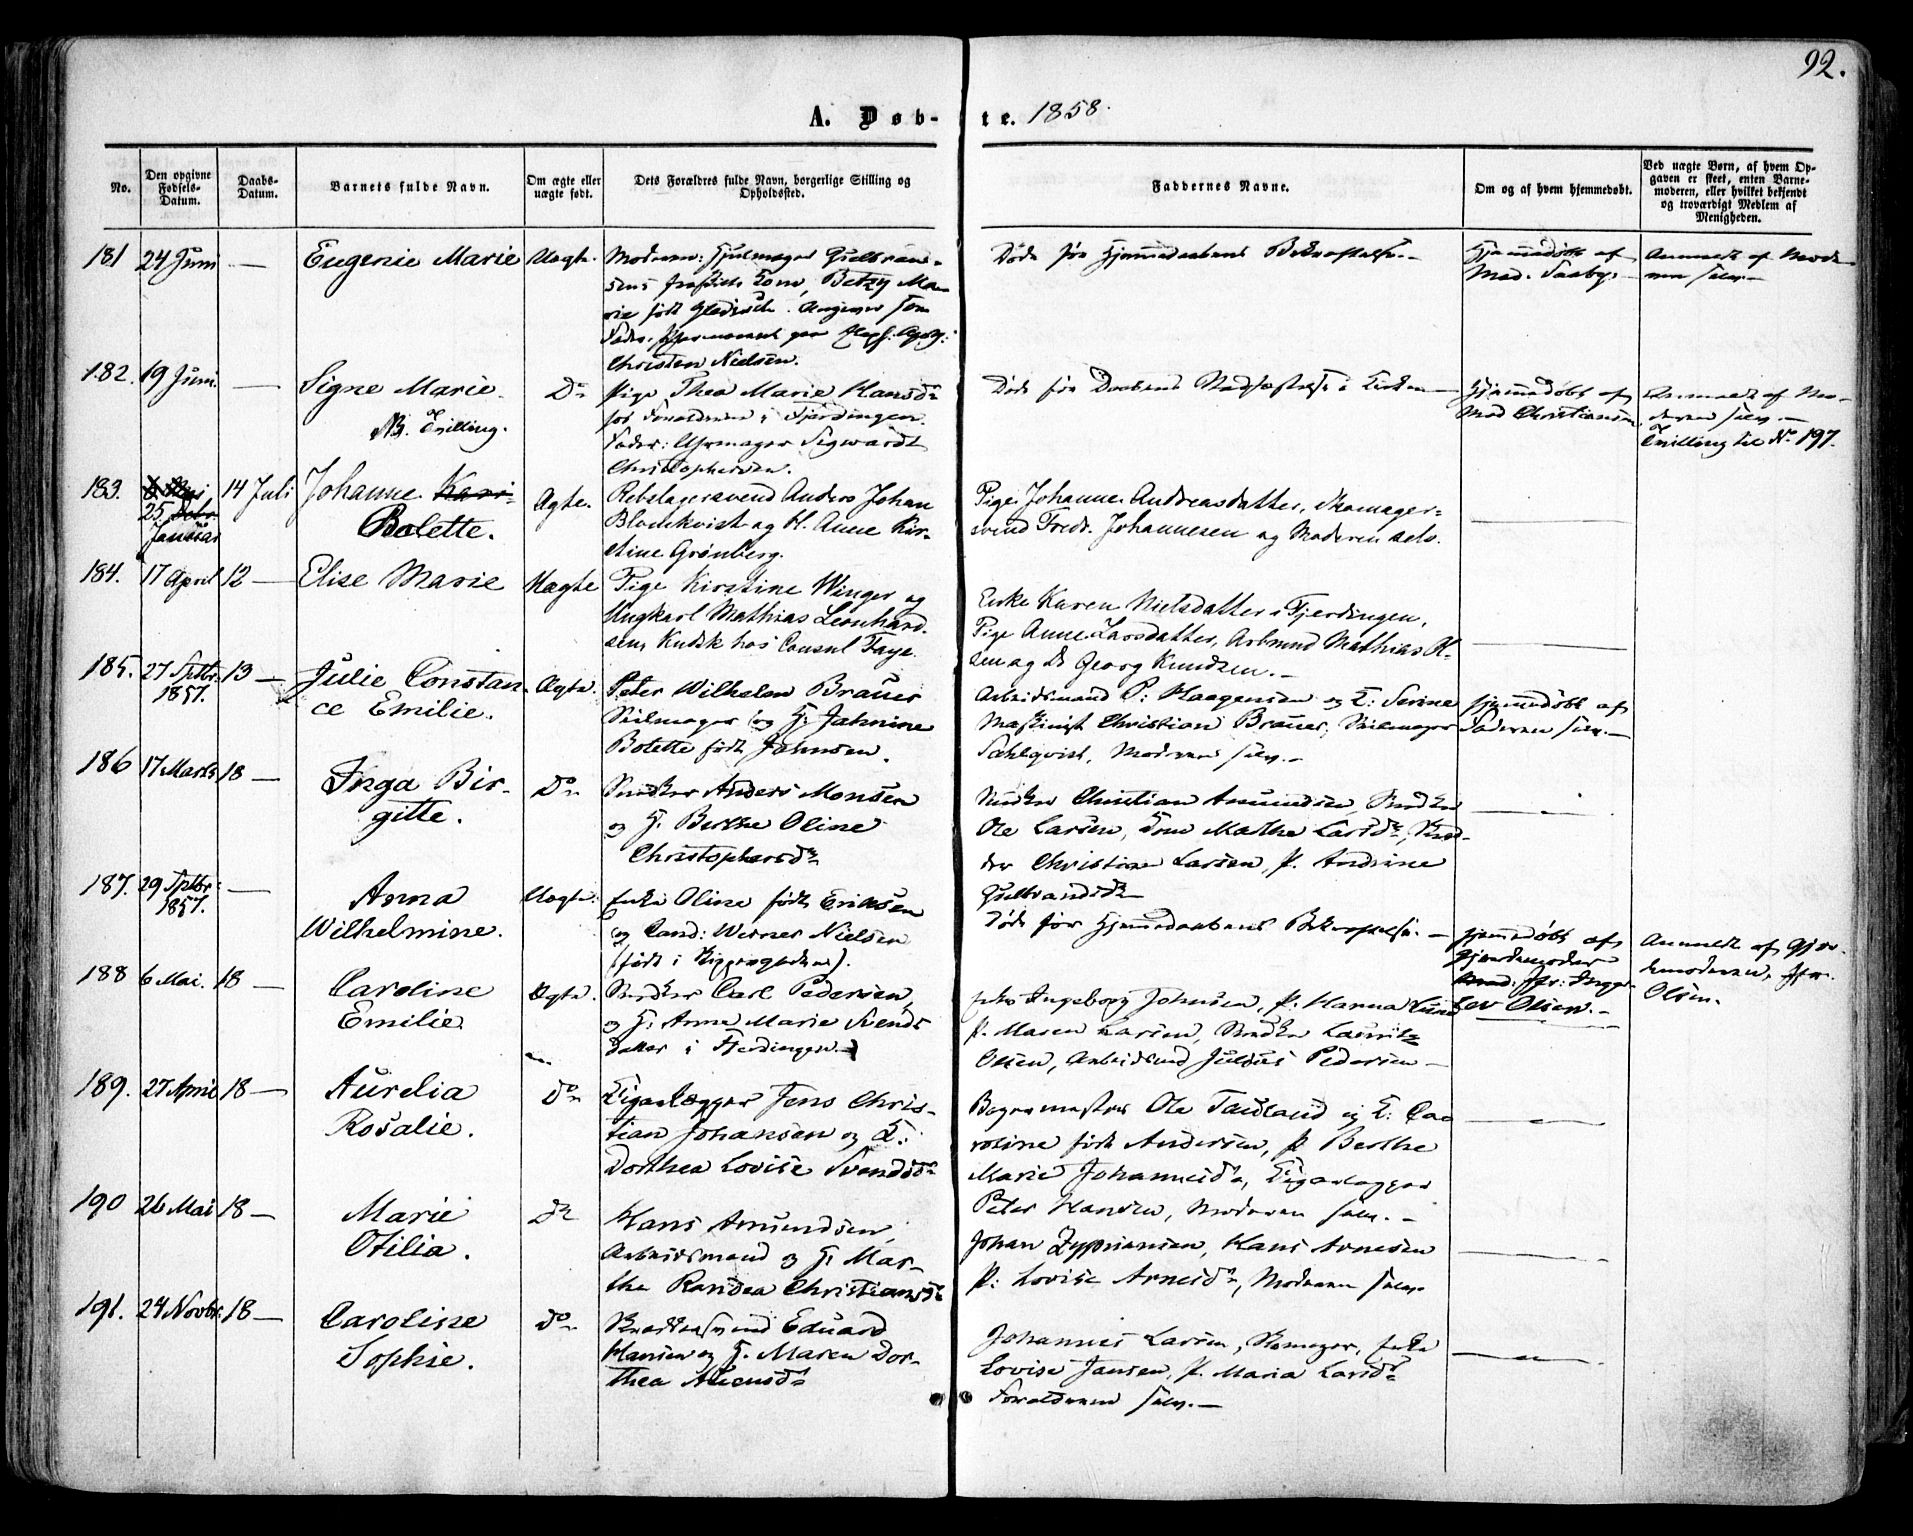 92.
A. Døb-te. 1858.
No.
Den opgivne Fødsels-Datum.
Daabs-Datum.
Barnets fulde Navn.
Om ægte eller uægte født.
Dets Forældres fulde Navn, borgerlige Stilling og Opholdssted.
Faddernes Navne.
Om og af hvem hjemmedøbt.
Ved uægte Børn, af hvem Opgaven er skeet, enten Barnemoderen, eller hvilket bekjendt og troværdigt Medlem af Menigheden.
181 24 Juni — Eugenie Marie Uægte.
Moderen: Hjulmager Gulbrand-
sens Kone, Betzy Ma-
rie født
Christen Nielsen.
Døde før Hjemmedaabens Bekræftelse. —
Hjemmedøbt af
Mad. Saxby.
Anmeldt af Mode-
ren selv. —
182. 19 Juni. — Signe Marie. Do
NB. Trilling.
Pige Thea Marie Hansdr
hos Forældrene i Fjerdingen.
Fader: Uhrmager Sigwardt
Christophersen.
Døde før Daabens Stadfæstelse i Kirken —
Hjemmedøbt af
Mad Christiansen.
Anmeldt af Mo-
deren selv. —
Trilling til No 197.
183. 25 Januar 14 Juli Johanne Kari-
Bolette. Ægte.
Rebslagersvend Anders Johan
Blomkvist og H. Anne Kir-
stine Grønberg.
Pige Johanne Andreasdatter, Skomager-
svend Fredr. Johannesen og Moderen selv.
184. 17 April 12 — Elise Marie Uægte
Pige Kirstine Winger og
Ungkarl Mathias Leonhard-
sen, Kudsk hos Consul Faye.
Enke Karen Nielsdatter i Fjerdingen,
Pige Anne Larsdatter, Arbmnd Mathias Ol-
sen og Do Georg Knudsen. —
185. 27 Septbr. 1857. 13 — Julie Constan-
ce Emilie. Ægte.
Peter Wilhelm Brauer
Seilmager og H. Jahnine
Bolette født Johnsen.
Arbeidsmand P. Haagensen og H: Serine
Maskinist Christian Brauer, Seilmager
Sahlqvist, Moderen selv. —
Hjemmedøbt af
Faderen selv. —
186 17 Marts 18 — Inga Bir-
gitte. Do
Snedker Anders Monsen
og H. Berthe Oline
Christophersdr
Snedker Christian Amundsen, Snedker
Ole Larsen, Kone Marthe Larsdr, Sned-
ker Christian Larsen, P. Andrine
Gulbrandsdr
187. 29 Septbr: 1857. — Anna
Wilhelmine. Uægte.
Enke Oline født Eriksen
og Cand: Werner Nielsen
(født i Riggergaden).
Døde før Hjemmedaabens Bekræftelse. —
Hjemmedøbt af
Gjordemoder
Olsen. —
Anmeldt af Gjor-
demoderen, Jfr.
Olsen.
188 6 Mai. 18 — Caroline
Emilie. Ægte.
Snedker Carl Pedersen,
og H. Anne Marie Svends
datter i Fjerdingen. —
Enke Ingeborg Johnsen, P. Hanna Lund
P. Maren Larsen, Snedker Lauritz
Olsen, Arbeidsmd Julius Pedersen —
189. 27 April 18 — Aurelia
Rosalie. Do
Cigarlægger Jens Chris-
tian Johansen og H:
Dorthea Lovise Svendsdr
Bogermester Ole Tandland og H: Ca-
roline født Andersen, P. Berthe
Marie Johannesdr, Cigarlægger
Peter Hansen, Moderen selv. —
190 26 Mai 18 — Marie
Otilia. Do
Hans Amundsen,
Arbeidsmand og H. Mar-
the Randea Christiansdr
Johan Zyprianson, Hans Arnesen
P: Lovise Arnesdr, Moderen selv.
191. 24 Novbr. 18 — Caroline
Sophie. Do
Skræddersvend Eduard
Hansen og H. Maren Dor-
thea
Johannes Larsen, Skomager, Enke
Lovise Jansen, P. Maria Larsdr
Forældrene selv. —